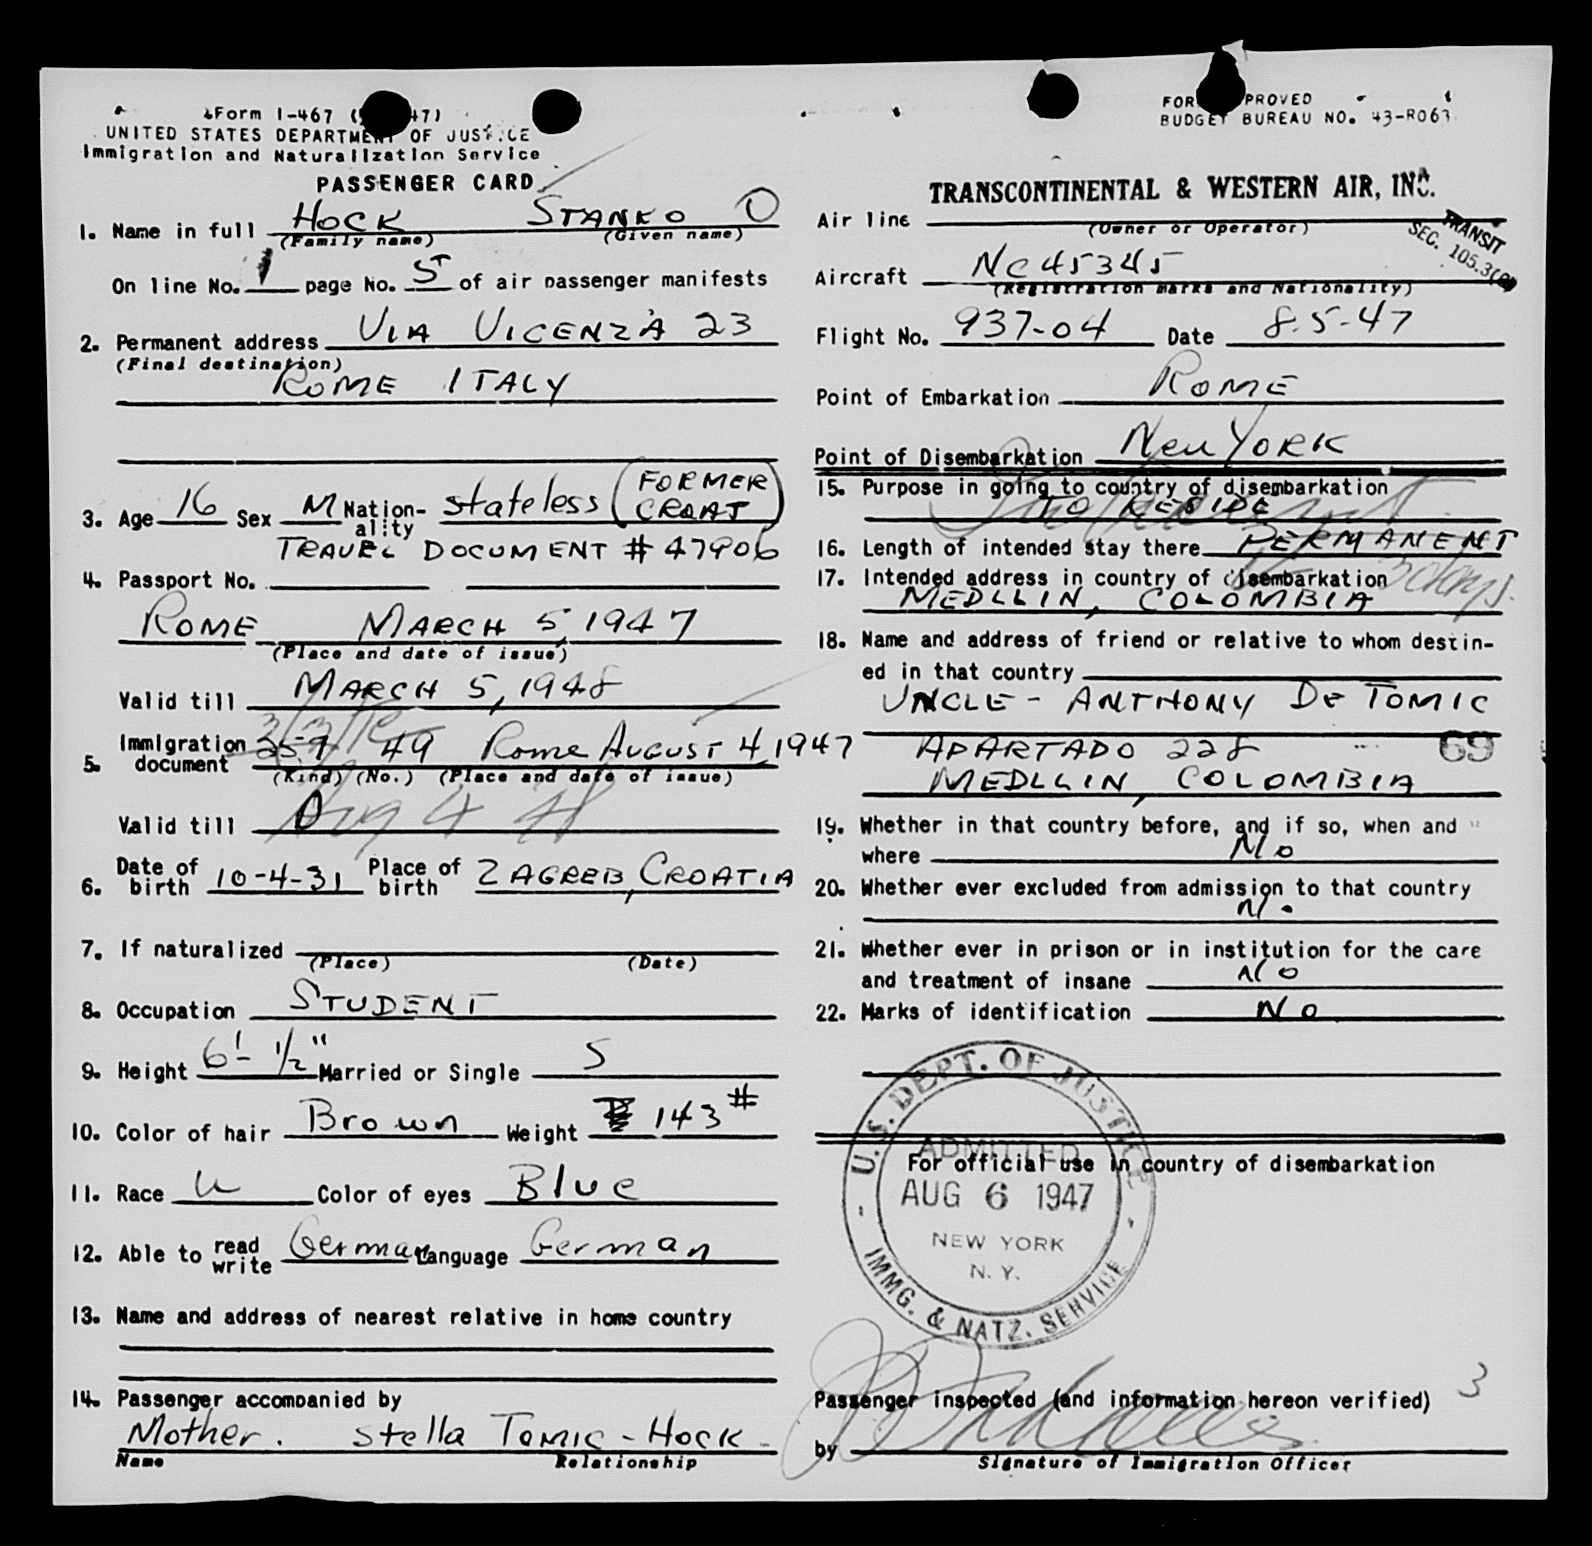 Form I-467 ( 47)
UNITED STATES DEPARTMENT OF JUSTICE
Immigration and Naturalization Service
PASSENGER CARD
1. Name in full HOCK STANKO O
(Family name) (Given name)
On line No. 1 page No. 5 of air passenger manifests
2. Permanent address VIA VICENZA 23
(Final destination)
ROME ITALY
3. Age 16 Sex M Nation-ality stateless (FORMER CROAT)
TRAVEL DOCUMENT # 47906
4. Passport No.
ROME MARCH 5, 1947
(Place and date of issue)
Valid till MARCH 5, 1948
5. Immigration document 257 49 Rome AUGUST 4, 1947
(Kind) (No.) (Place and date of issue)
Valid till Aug 4
6. Date of birth 10-4-31 Place of birth ZAGREB, CROATIA
7. If naturalized
(Place) (Date)
8. Occupation STUDENT
9. Height 6'-1/2" Married or Single S
10. Color of hair Brown Weight 143#
11. Race W Color of eyes Blue
12. Able to read write German Language German
13. Name and address of nearest relative in home country
14. Passenger accompanied by
Mother. Stella Tomic-Hock
Name Relationship
FORM APPROVED
BUDGET BUREAU NO. 43-R063
TRANSCONTINENTAL & WESTERN AIR, INC.
Air line
(Owner or Operator)
TRANSIT
SEC. 105.3
Aircraft NC45345
(Registration marks and Nationality)
Flight No. 937-04 Date 8-5-47
Point of Embarkation ROME
Point of Disembarkation New YORK
15. Purpose in going to country of disembarkation
TO RESIDE
16. Length of intended stay there PERMANENT
17. Intended address in country of disembarkation
3 days.
MEDLLIN, COLOMBIA
18. Name and address of friend or relative to whom destin-
ed in that country
UNCLE - ANTHONY DE TOMIC
APARTADO 228
69
MEDLLIN, COLOMBIA
19. Whether in that country before, and if so, when and
where No
20. Whether ever excluded from admission to that country
No
21. Whether ever in prison or in institution for the care
and treatment of insane No
22. Marks of identification No
U.S. DEPT. OF JUSTICE
ADMITTED
For official use in country of disembarkation
AUG 6 1947
NEW YORK
N. Y.
IMMG. & NATZ. SERVICE
Passenger inspected (and information hereon verified) 3
by
Signature of Immigration Officer